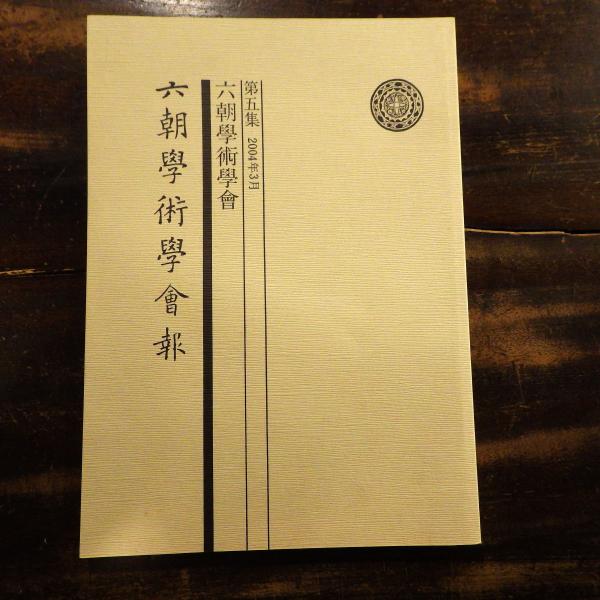 第五集 2004年3月
六朝學術學會
六朝學術學會報